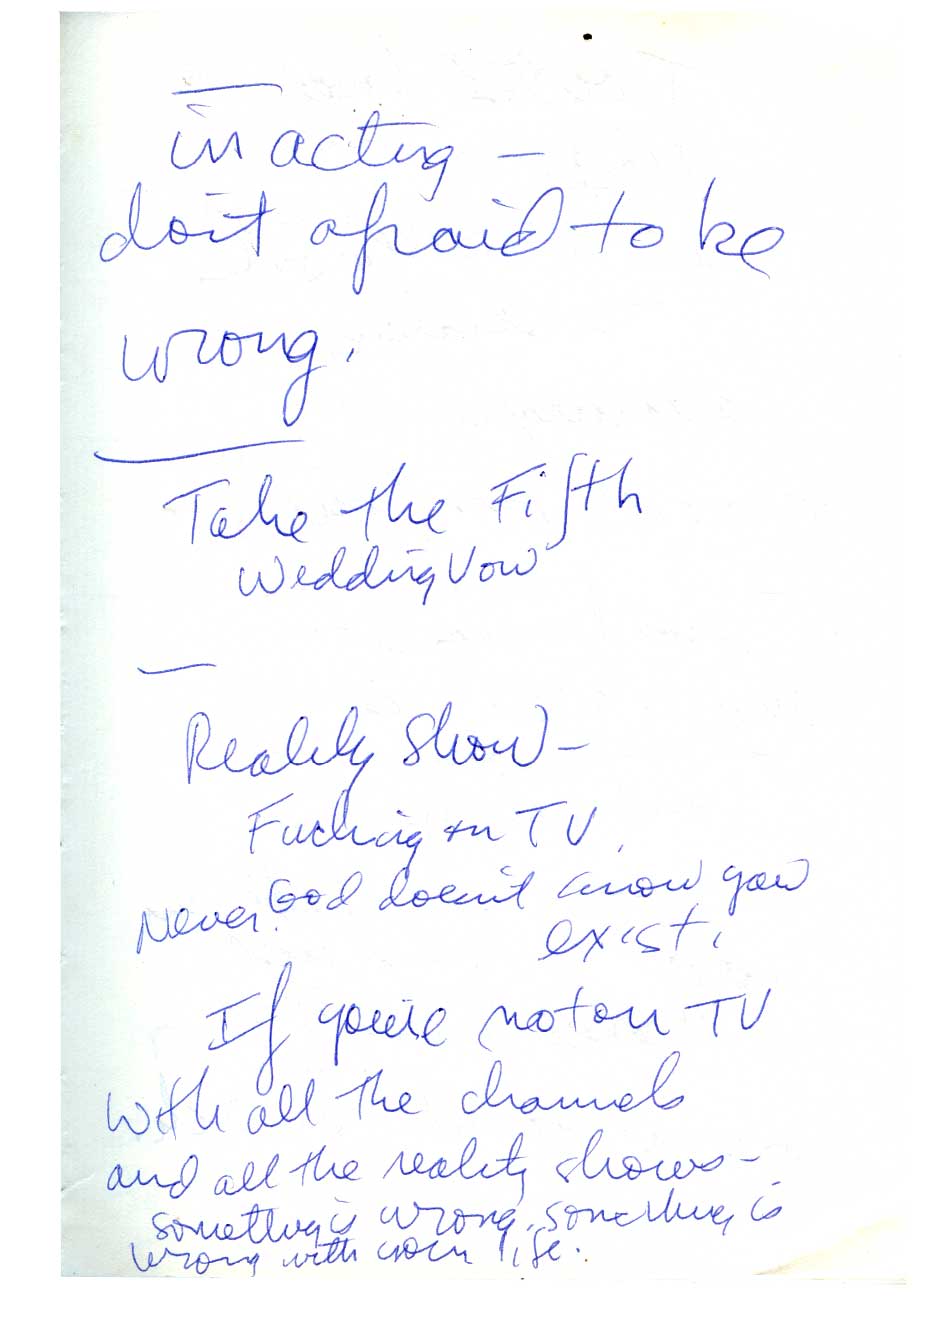 in acting —
don't afraid to be
wrong.
Take the Fifth
Wedding Vow
Reality Show —
Fucking on TV.
Never. God doesn't know you
exist.
If you're not on TV
with all the channels
and all the reality shows —
something is wrong, something is
wrong with your life.